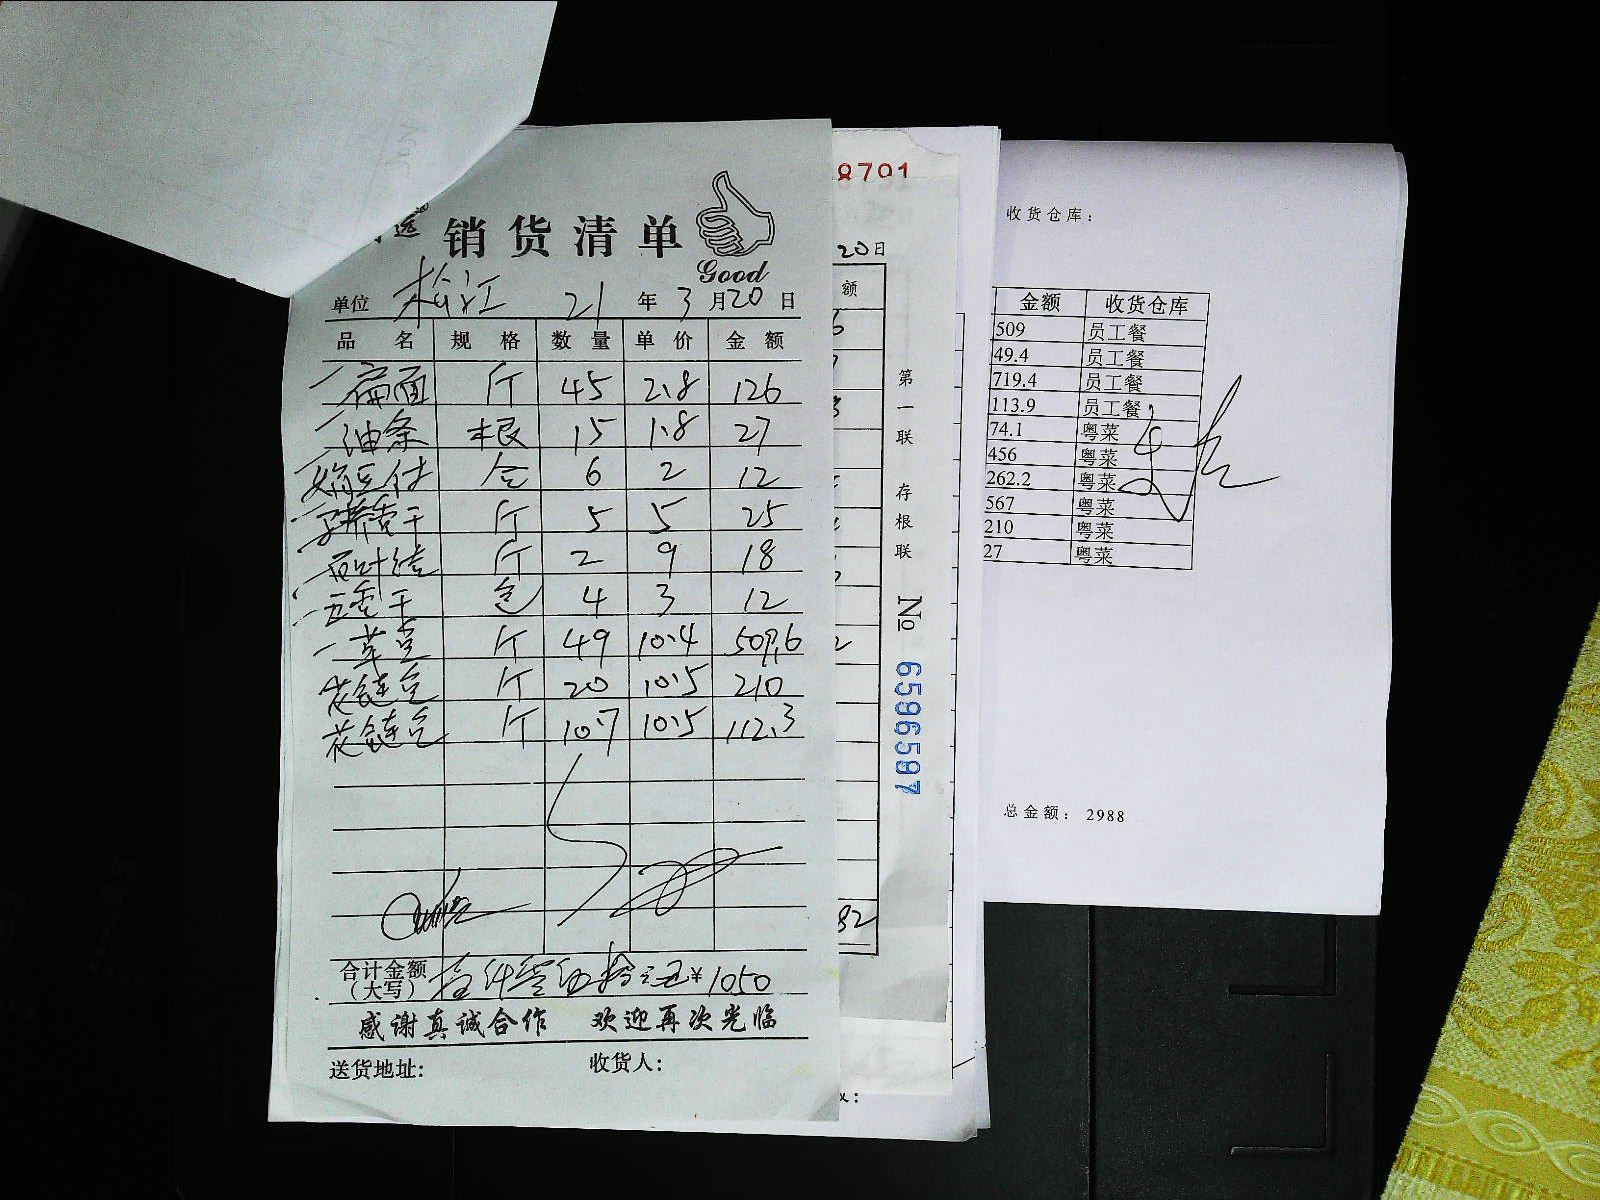 销货清单
Good
单位 松江 21年3月20日
品名 规格 数量 单价 金额
扁面 斤 45 2.8 126
油条 根 15 1.8 27
豆付 合 6 2 12
香干 斤 5 5 25
百叶结 斤 2 9 18
五香干 包 4 3 12
斤 49 10.4 509.6
花链 斤 20 10.5 210
花链 斤 10.7 10.5 112.3
合计金额(大写) 壹仟零伍拾元 ¥1050
感谢真诚合作 欢迎再次光临
送货地址: 收货人:
8701
20日
额
82
第一联 存根联 № 6596597
收货仓库:
金额 收货仓库
509 员工餐
49.4 员工餐
719.4 员工餐
113.9 员工餐
74.1 粤菜
456 粤菜
262.2 粤菜
567 粤菜
210 粤菜
27 粤菜
总金额: 2988